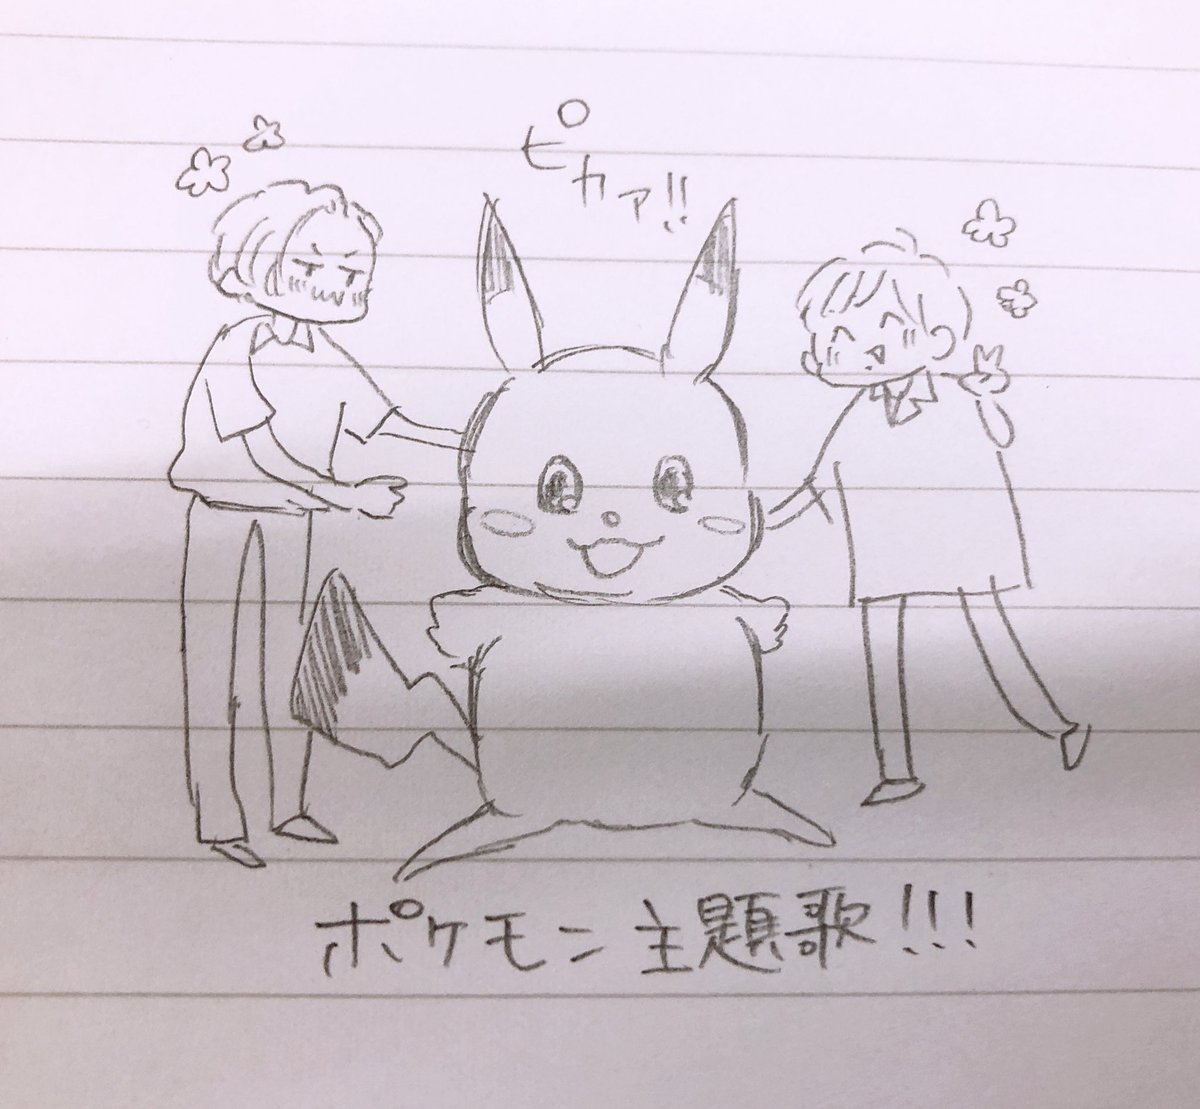 ピカァ!!
ポケモン主題歌!!!